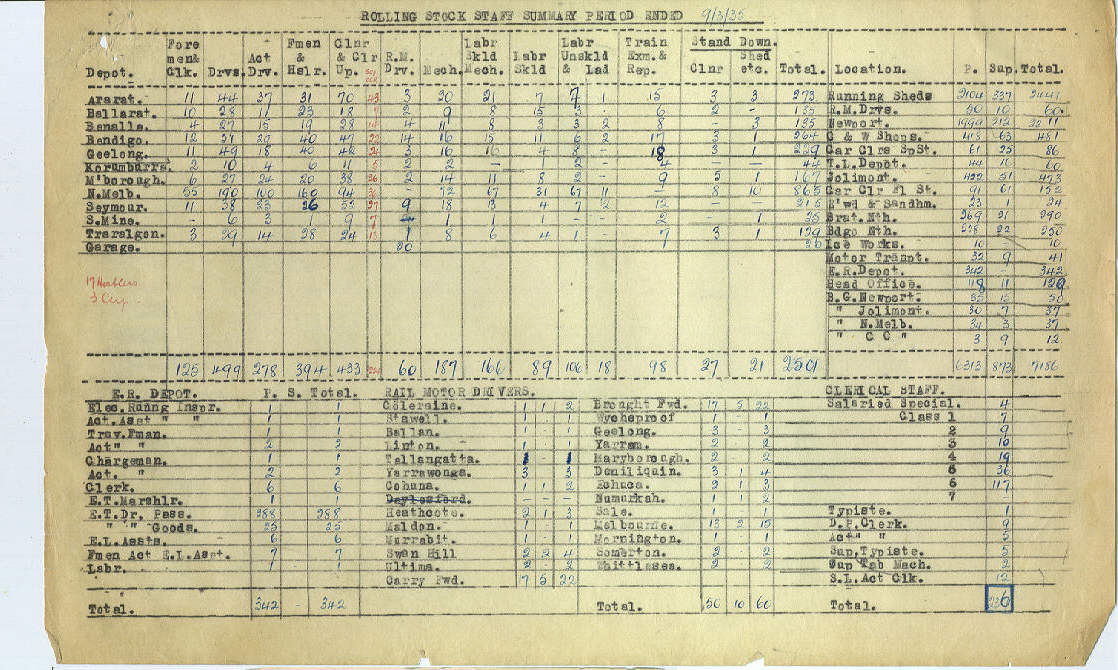 ROLLING STOCK STAFF SUMMARY PERIOD ENDED 9/3/35
Depot. Fore men& Clk. Drvs. Act Drv. Fmen & Hslr. Clnr & Clr Up. R.M. Drv. Mech. Labr Skld Mech. Labr Skld Labr Unskld & Lad Train Exm. & Rep. Stand Down. Clnr Shed etc. Total. Location. P. Sup. Total.
Ararat. 11 44 37 31 70 43 3 20 21 7 7 1 15 3 3 273 Running Sheds 2104 337 2441
Ballarat. 10 28 17 23 18 2 9 8 15 3 6 2 - R.M. Drvs. 50 10 60
Benalla. 4 27 15 19 28 14 11 8 3 2 8 - 3 Newport.
Bendigo. 12 37 20 40 47 22 14 16 15 11 6 2 17 3 1 264 C & W Shops. 418 63 481
Geelong. 11 49 18 40 42 3 16 16 4 18 3 1 Car Clrs Sp St. 61 25 86
Korumburra. 2 10 4 6 11 5 2 2 - 2 - 4 - - 44 T.L. Depot. 44 16 60
M'borough. 6 27 24 20 38 26 2 14 11 8 2 - 9 5 1 167 Jolimont. 422 51 473
N.Melb. 55 190 100 160 94 36 - 72 67 31 67 11 - 8 10 865 Car Clr Fl St. 91 61 152
Seymour. 11 38 23 26 53 27 9 18 13 4 7 2 12 - - 215 E'wd & Sandhm. 23 1 24
S.Mine. - 6 3 1 9 7 1 1 - - 1 25 Brat. Nth. 269 21 290
Traralgon. 3 29 14 28 24 13 1 8 6 4 1 - 7 3 1 129 Bdgo Nth. 228 22 250
Garage. 20 1 Ice Works. 10 10
Motor Tranpt. 32 9 41
17 Hostlers
E.R. Depot. 342 - 342
Head Office. 118 11 129
B.G. Newport.
" Jolimont. 30 7 37
" N.Melb. 34 3 37
" C C " 3 9 12
125 499 278 394 433 60 187 166 89 106 18 98 27 21 2501 6313 873 7186
E.R. DEPOT. P. S. Total. RAIL MOTOR DRIVERS. CLERICAL STAFF.
Elec. Runng Inspr. 1 1 Coleraine. 1 1 2 Brought Fwd. 17 5 22 Salaried Special. 4
Act. Asst " " 1 1 Stawell. 1 - 1 Wycheproof 1 - 1 Class 1 7
Trav. Fman. 1 1 Ballan. 1 - 1 Geelong. 3 - 3 2 9
Act " " 2 2 Linton. 1 - 1 Yarram. 2 - 2 3 10
Chargeman. 1 1 Tallangatta. 1 - 1 Maryborough. 2 - 2 4 19
Act. " 2 2 Yarrawonga. 3 - 3 Deniliquin. 3 1 4 5 36
Clerk. 6 6 Cohuna. 1 1 2 Echuca. 2 1 3 6 117
E.T. Marshlr. 1 1 Daylesford. - - - Numurkah. 1 1 2 7
E.T. Dr. Pass. 288 288 Heathcote. 2 1 3 Sale. 1 - 1 Typiste. 1
" " " Goods. 25 25 Maldon. 1 - 1 Melbourne. 13 2 15 D.P. Clerk. 9
E.L. Assts. 6 6 Murrabit. 1 - 1 Mornington. 1 - 1 Act " " 5
Fmen Act E.L. Asst. 7 7 Swan Hill 2 2 4 Somerton. 2 - 2 Sup. Typiste. 5
Labr. 1 1 Ultima. 2 - 2 Whittlesea. 2 - 2 Sup Tab Mach. 2
Carry Fwd. 17 5 22 S.L. Act Clk. 12
Total. 342 - 342 Total. 50 10 60 Total. 236